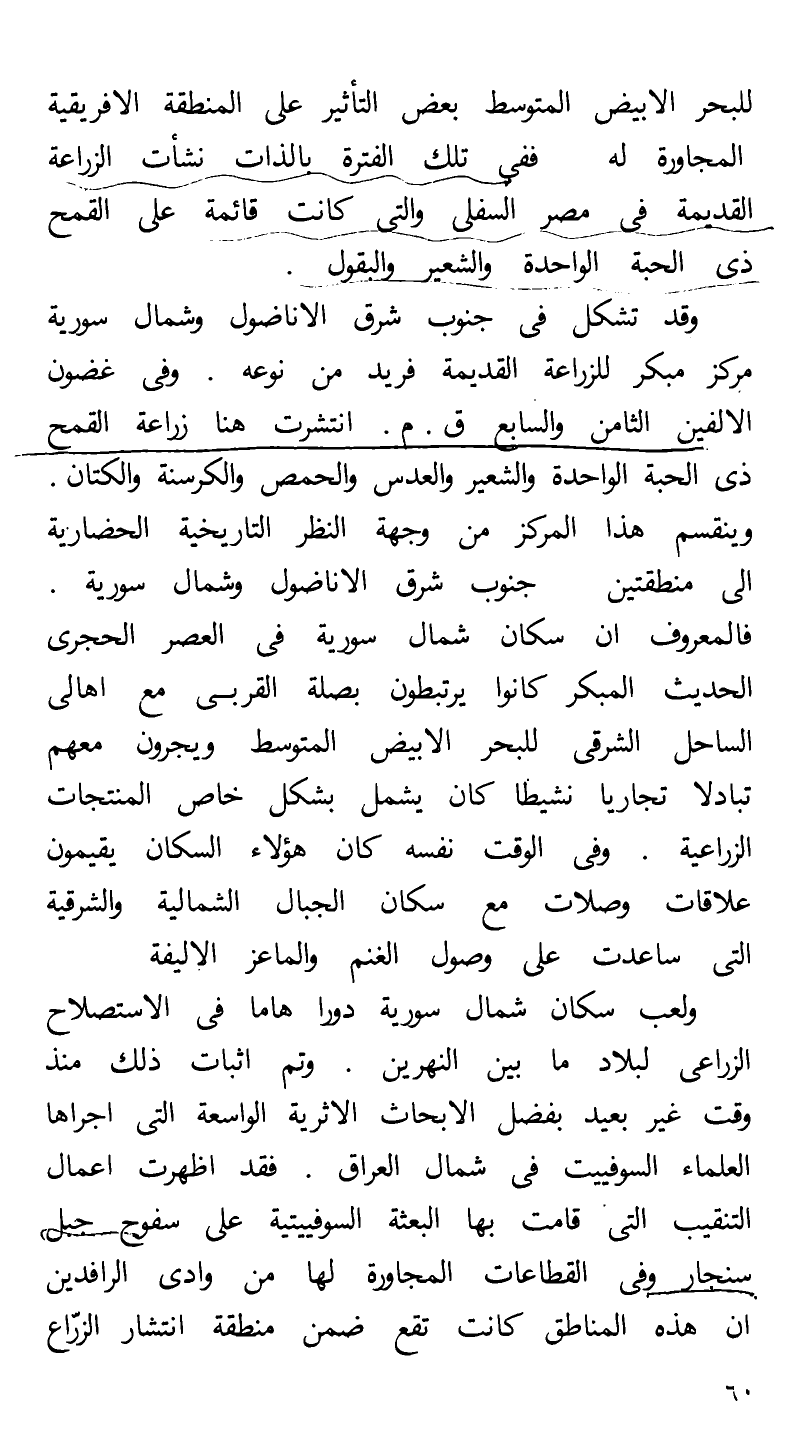 للبحر الابيض المتوسط بعض التأثير على المنطقة الافريقية
المجاورة له ففى تلك الفترة بالذات نشأت الزراعة
القديمة فى مصر السفلى والتى كانت قائمة على القمح
ذى الحبة الواحدة والشعير والبقول .
وقد تشكل فى جنوب شرق الاناضول وشمال سورية
مركز مبكر للزراعة القديمة فريد من نوعه . وفى غضون
الالفين الثامن والسابع ق . م . انتشرت هنا زراعة القمح
ذى الحبة الواحدة والشعير والعدس والحمص والكرسنة والكتان .
وينقسم هذا المركز من وجهة النظر التاريخية الحضارية
الى منطقتين جنوب شرق الاناضول وشمال سورية .
فالمعروف ان سكان شمال سورية فى العصر الحجرى
الحديث المبكر كانوا يرتبطون بصلة القربــى مع اهالى
الساحل الشرقى للبحر الابيض المتوسط ويجرون معهم
تبادلا تجاريا نشيطا كان يشمل بشكل خاص المنتجات
الزراعية . وفى الوقت نفسه كان هؤلاء السكان يقيمون
علاقات وصلات مع سكان الجبال الشمالية والشرقية
التى ساعدت على وصول الغنم والماعز الاليفة
ولعب سكان شمال سورية دورا هاما فى الاستصلاح
الزراعى لبلاد ما بين النهرين . وتم اثبات ذلك منذ
وقت غير بعيد بفضل الابحاث الاثرية الواسعة التى اجراها
العلماء السوفييت فى شمال العراق . فقد اظهرت اعمال
التنقيب التى قامت بها البعثة السوفييتية على سفوح جبل
سنجار وفى القطاعات المجاورة لها من وادى الرافدين
ان هذه المناطق كانت تقع ضمن منطقة انتشار الزرّاع
٦٠